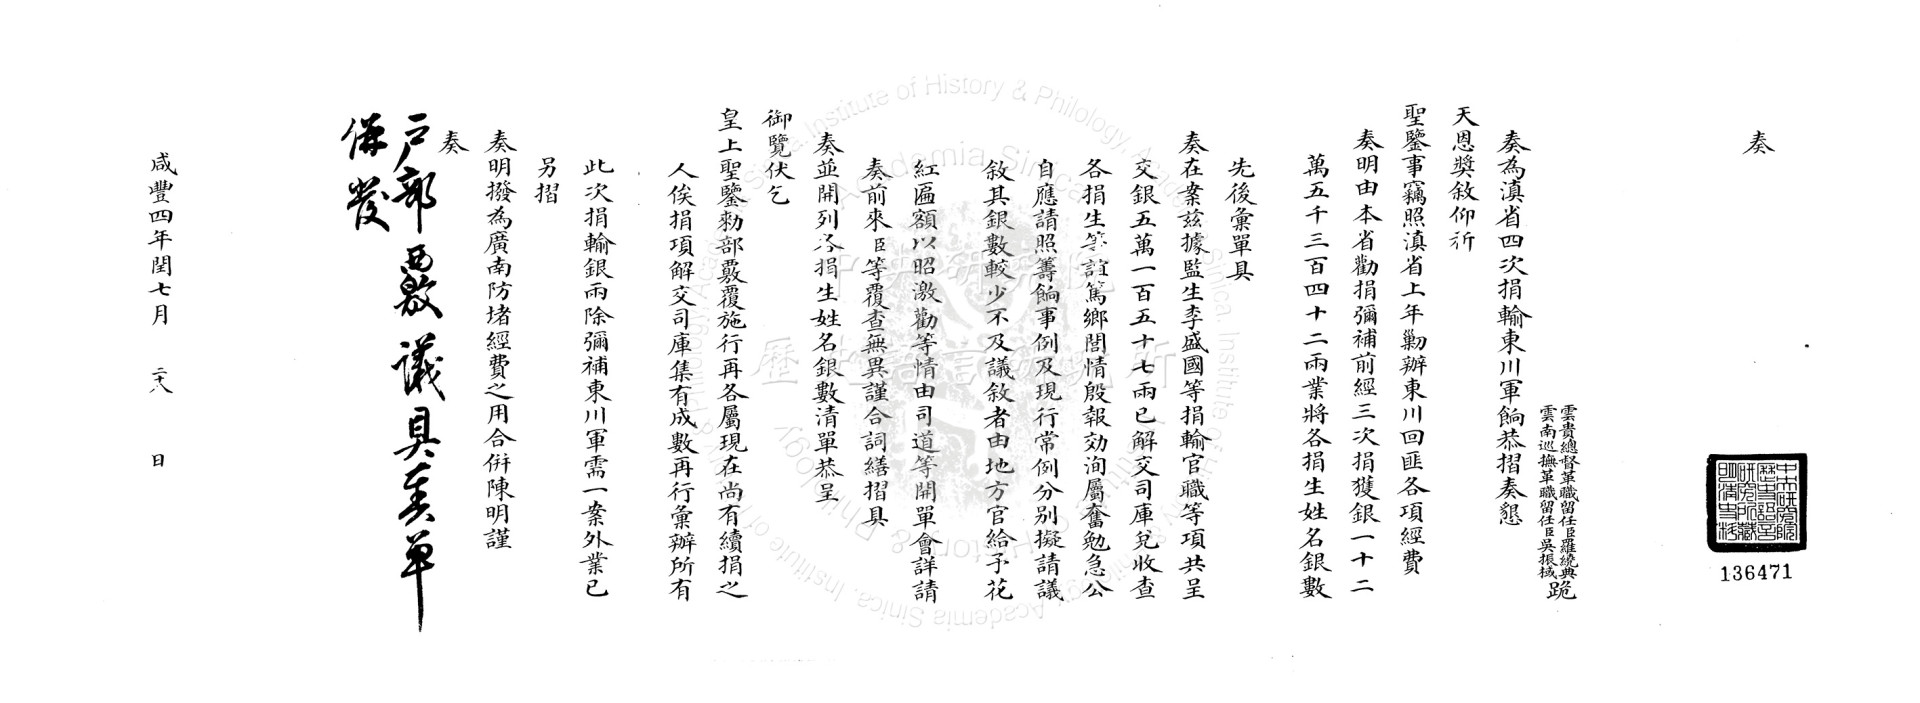 奏
雲貴總督革職留任臣羅繞典
雲南巡撫革職留任臣吳振棫 跪
奏為滇省四次捐輸東川軍餉恭摺奏懇
天恩獎敘仰祈
聖鑒事竊照滇省上年勦辦東川回匪各項經費
奏明由本省勸捐彌補前經三次捐獲銀一十二
萬五千三百四十二兩業將各捐生姓名銀數
先後彙單具
奏在案茲據監生李盛國等捐輸官職等項共呈
交銀五萬一百五十七兩已解交司庫兌收查
各捐生等誼篤鄉閭情殷報効洵屬奮勉急公
自應請照籌餉事例及現行常例分別擬請議
敘其銀數較少不及議敘者由地方官給予花
紅匾額以昭激勸等情由司道等開單會詳請
奏前來臣等覆查無異謹合詞繕摺具
奏並開列各捐生姓名銀數清單恭呈
御覽伏乞
皇上聖鑒勅部覈覆施行再各屬現在尚有續捐之
人俟捐項解交司庫集有成數再行彙辦所有
此次捐輸銀兩除彌補東川軍需一案外業已
另摺
奏明撥為廣南防堵經費之用合併陳明謹
奏
戶部覈議具奏單
併發
咸豐四年閏七月 二十八 日
中央研究院
歷史語言
研究所藏
明清史料
136471
中央研究院
歷史語言研究所
Institute of History & Philology, Academia Sinica